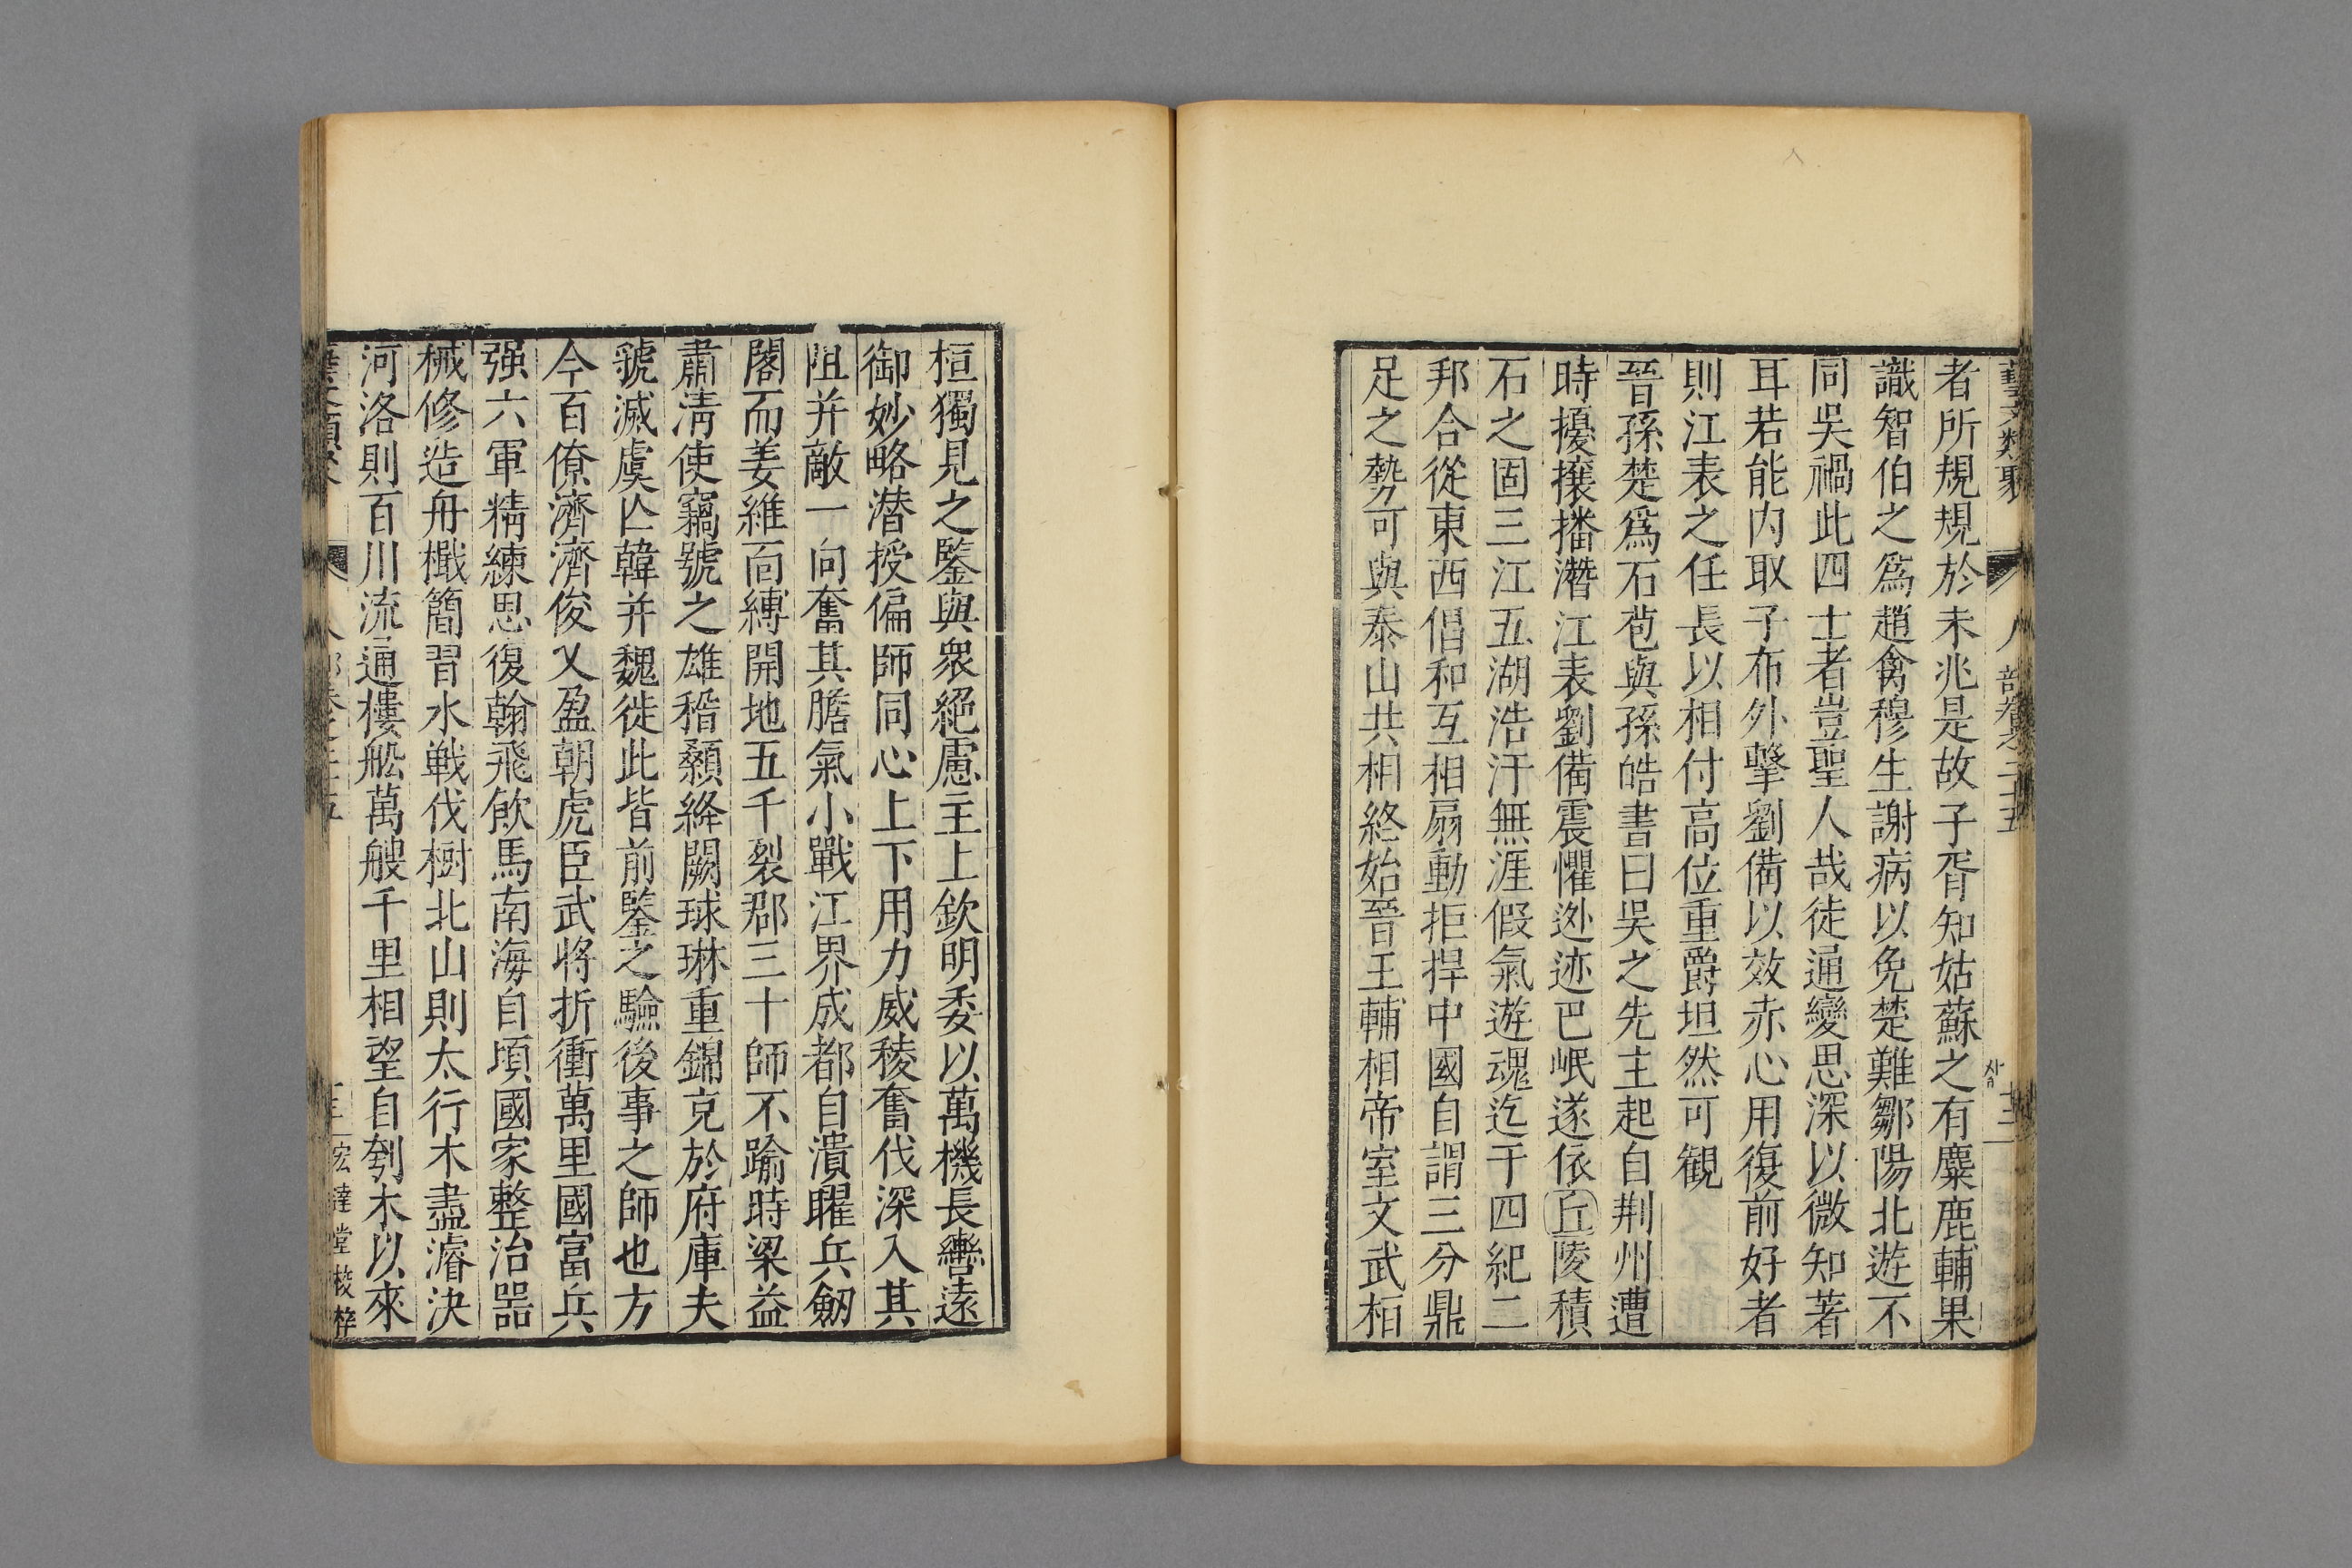 藝文類聚 人部卷之二十五 十三
者所規規於未兆是故子胥知姑蘇之有麋鹿輔果
識智伯之爲趙禽穆生謝病以免楚難鄒陽北遊不
同吳禍此四士者豈聖人哉徒通變思深以微知著
耳若能內取子布外擊劉備以效赤心用復前好者
則江表之任長以相付高位重爵坦然可觀
晉孫楚爲石苞與孫皓書曰吳之先主起自荆州遭
時擾攘播潛江表劉備震懼迯迹巴岷遂依丘陵積
石之固三江五湖浩汗無涯假氣遊魂迄于四紀二
邦合從東西倡和互相扇動拒捍中國自謂三分鼎
足之勢可與泰山共相終始晉王輔相帝室文武栢
桓獨見之鑒與衆絕慮主上欽明委以萬機長轡遠
御妙略潜授偏師同心上下用力威稜奮伐深入其
阻并敵一向奮其膽氣小戰江界成都自潰曜兵劒
閣而姜維面縛開地五千裂郡三十師不踰時梁益
肅清使竊號之雄稽顙絳闕球琳重錦克於府庫夫
虢滅虞亾韓并魏徙此皆前鑒之驗後事之師也方
今百僚濟濟俊乂盈朝虎臣武將折衝萬里國富兵
强六軍精練思復翰飛飲馬南海自頃國家整治噐
械修造舟檝簡習水戰伐樹北山則太行木盡濬决
河洛則百川流通樓船萬艘千里相望自刳木以來
宏達堂梭梓